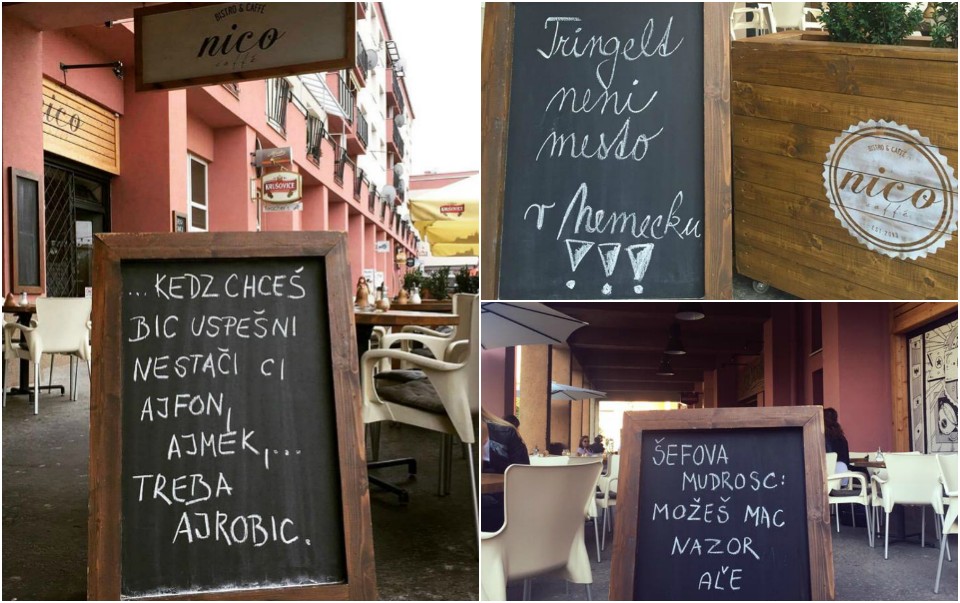 BISTRO & CAFFÉ
nico
caffé
nico
KRUŠOVICE
... KEDZ CHCEŠ
BIC USPEŠNI
NESTAČI CI
AJFON,
AJMEK,...
TREBA
AJROBIC.
Tringelt
neni
mesto
v Nemecku
!!!
BISTRO & CAFFÉ
nico
caffé
ŠEFOVA
MUDROSC:
MOŽEŠ MAC
NAZOR
AĽE